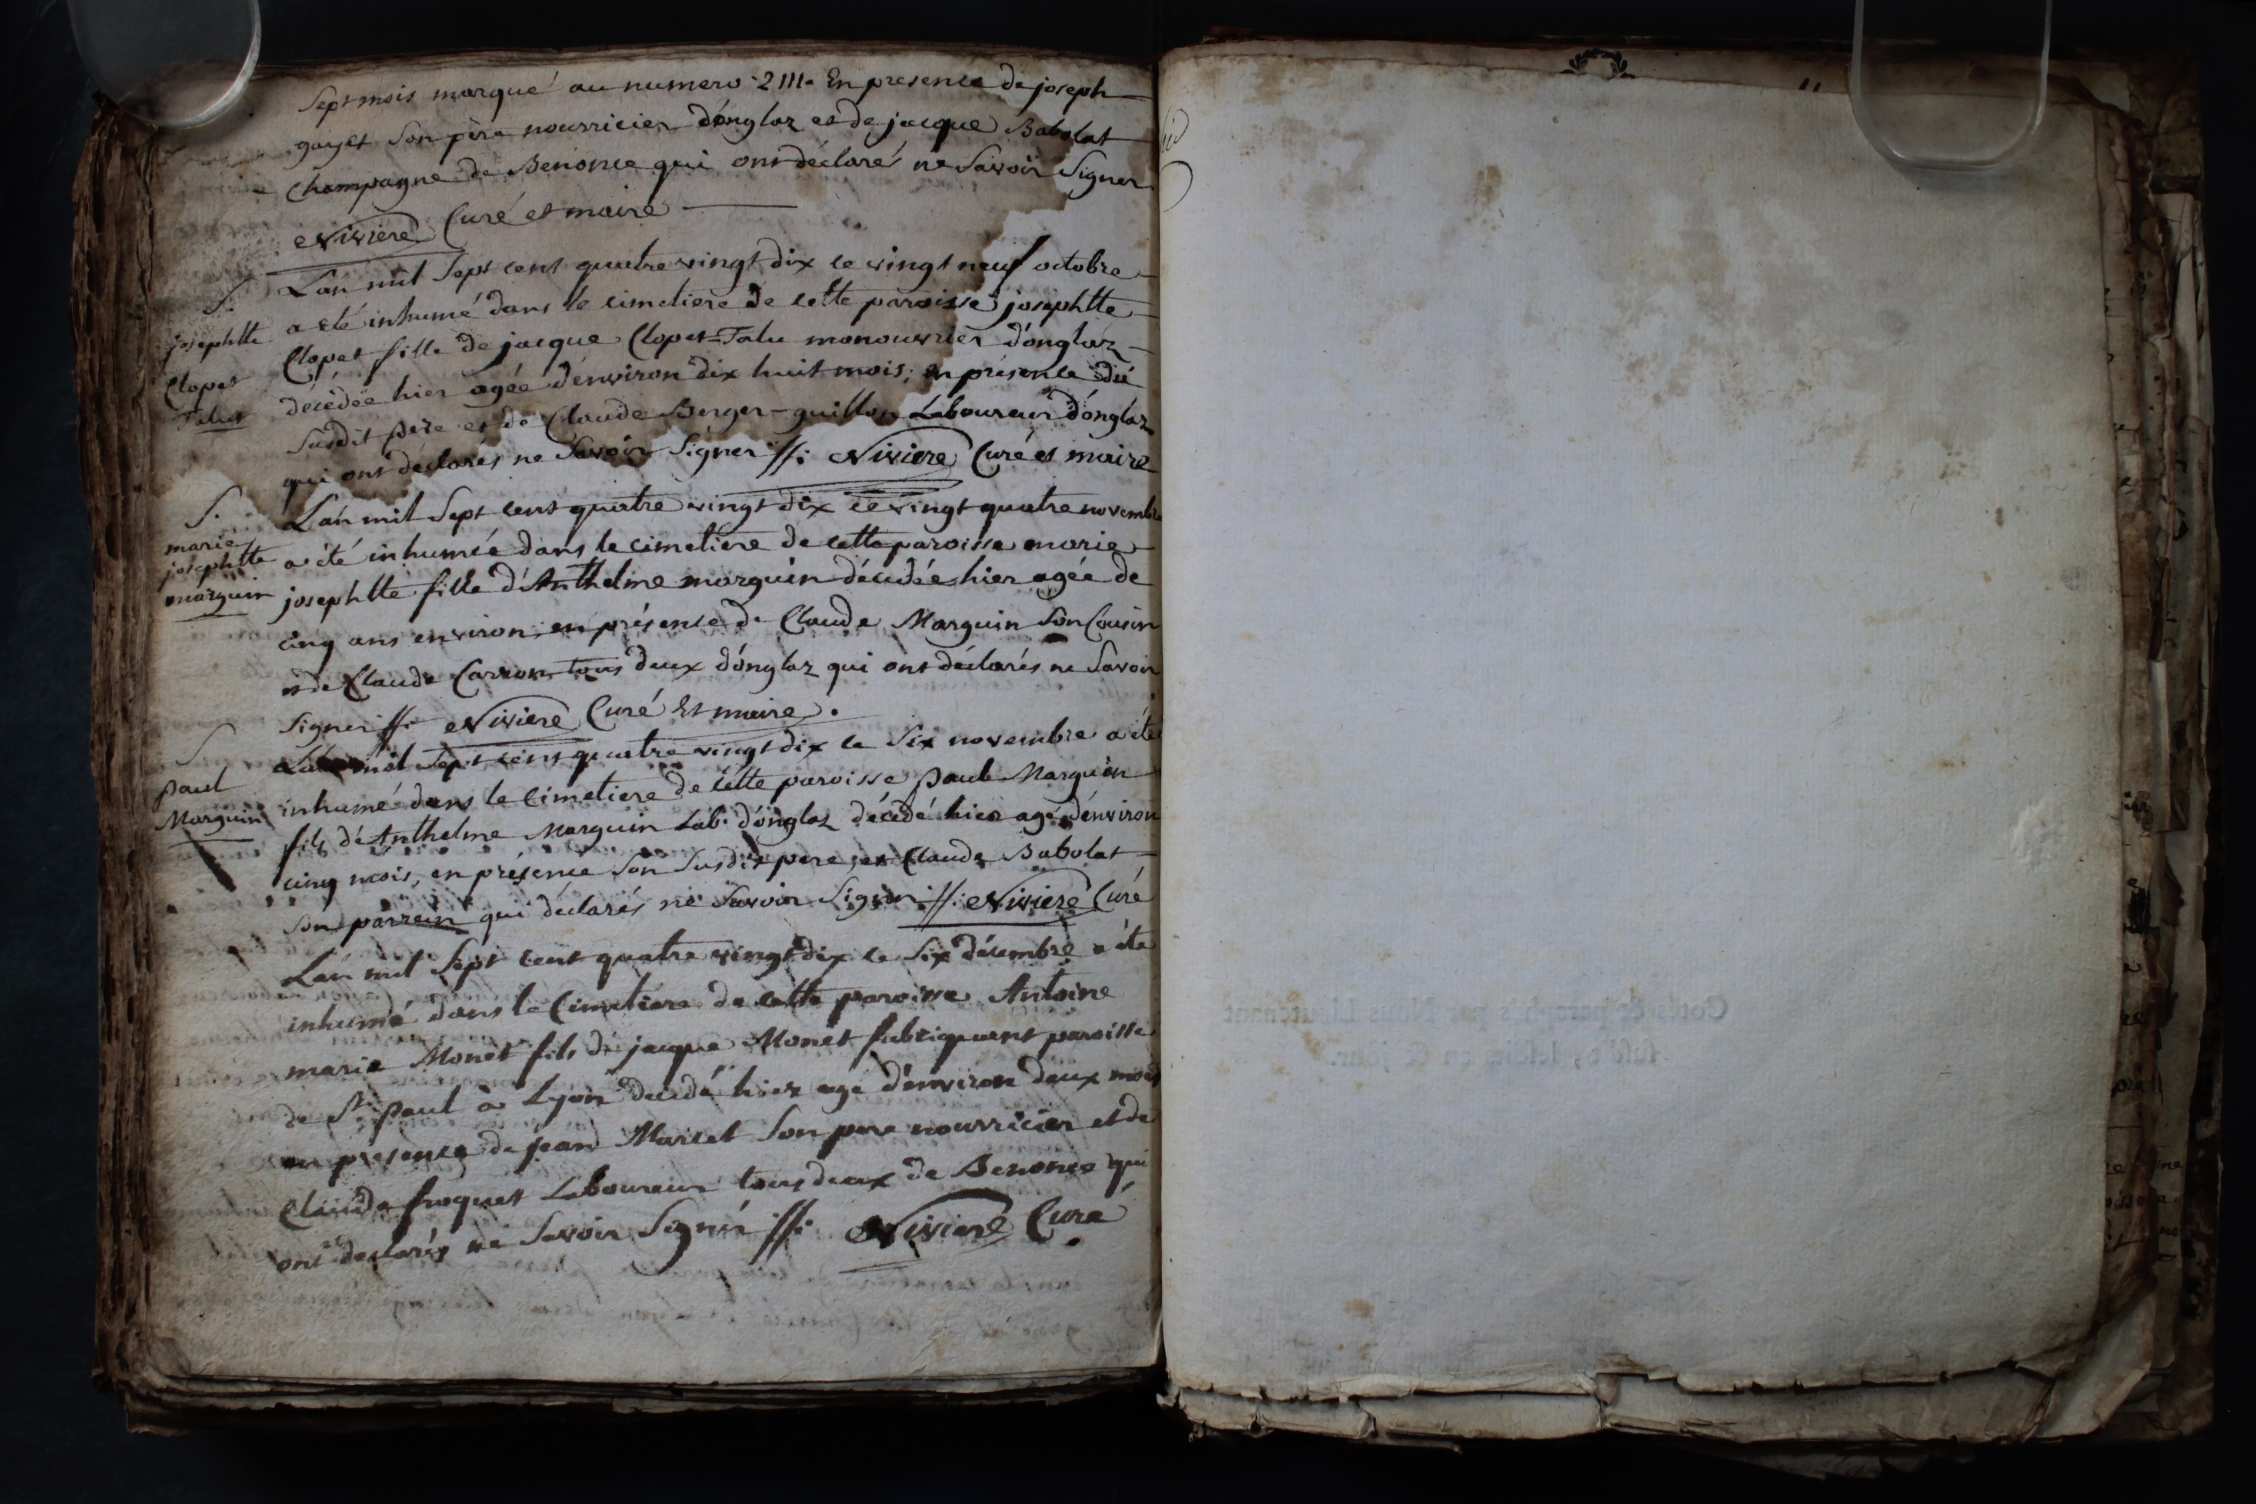 Sept mois marqué au numero 2111. En presence de joseph
gayet Son père nourricier d'onglaz et de jacque Babolat
Champagne de Benonce qui ont déclaré ne Savoir Signer
Niviere Curé et maire
L'an mil Sept cent quatre vingt dix le vingt neuf octobre
a eté inhumé dans le cimetiere de cette paroisse josephtte
Clopet fille de jacque Clopet=Talu manouvrier d'onglaz
décédée hier agée d'environ dix huit mois; en présence du
Susdit pere et de Claude Berger-guillon Laboureur d'onglaz
qui ont declarés ne Savoir Signer //: Niviere Curé et maire
S.
josephtte
Clopet
Talus
L'an mil Sept cent quatre vingt dix le vingt quatre novembre
a été inhumée dans le cimetiere de cette paroisse marie
josephtte fille d'Anthelme marguin décédée hier agée de
Cinq ans environ; en présence de Claude Marguin Son Cousin
et de Claude Carron tous deux d'onglaz qui ont déclarés ne Savoir
Signer //: Niviere Curé Et maire.
S.
marie
josephtte
marguin
L'an mil Sept cent quatre vingt dix le Six novembre a été
inhumé dans le Cimetiere de cette paroisse paul Marguin
fils d'Anthelme Marguin Lab. d'onglaz décédé hier agé d'environ
cinq mois, en présence Son Susdit pere, et Claude Babolat
Son parrein qui déclarés ne Savoir Signer //: Niviere Curé
S
paul
Marguin
L'an mil Sept cent quatre vingt dix le Six décembre a été
inhumé dans le Cimetiere de cette paroisse Antoine
marie Monet fils de jacque Monet fabriquent paroisse
de St. paul à Lyon decedé hier agé d'environ deux mois
en présence de jean Marcel Son pere nourricier et de
Claude froquet Laboureur tous deux de Benonce qui
ont declarés ne Savoir Signer //: Niviere Curé
11